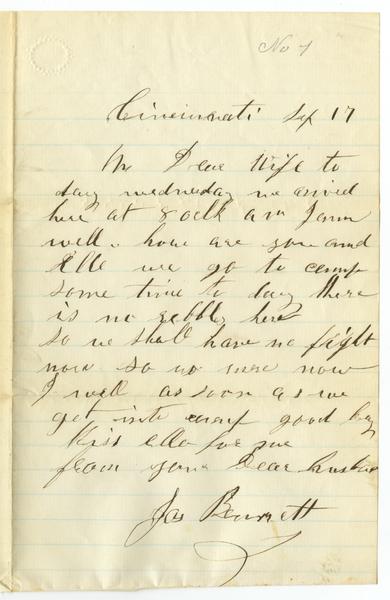 No 1
Cincinnati Sep 17
My Dear Wife to
day wednesday we arived
here at 8 oclk am I am
well. how are you and
Ella we go to camp
some time to day there
is no rebbls here
so we shall have no fight
now so no more now
I will as soon as we
get into camp good by
Kiss ella for me
from your Dear husban
Jas Bennett